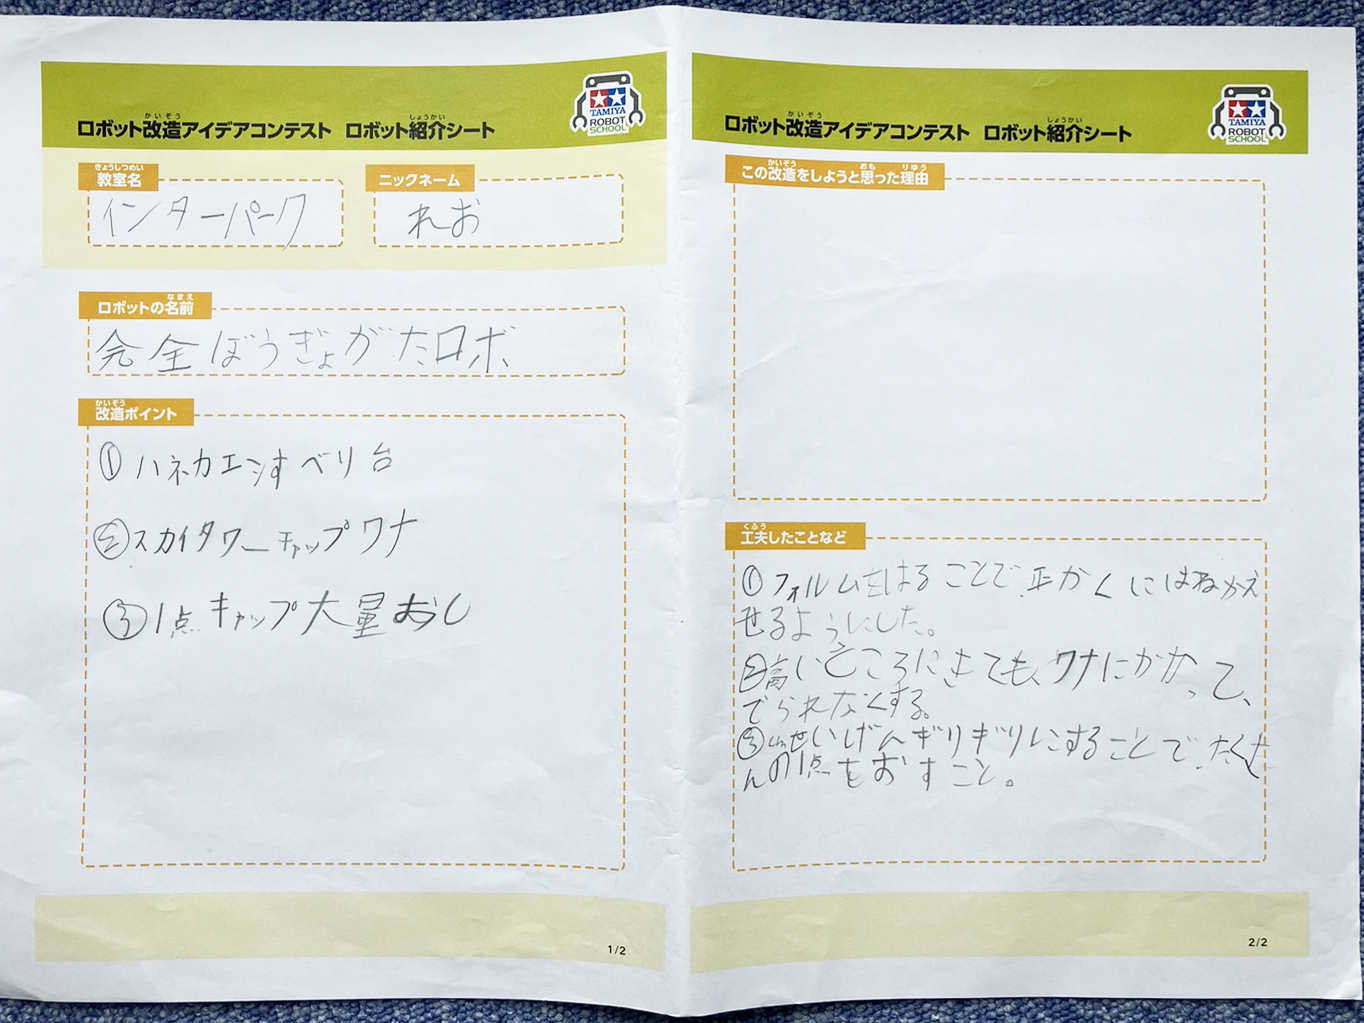 かいぞう しょうかい
ロボット改造アイデアコンテスト ロボット紹介シート
TAMIYA
ROBOT
SCHOOL
きょうしつめい
教室名
インターパーク
ニックネーム
れお
なまえ
ロボットの名前
完全ぼうぎょがたロボ
かいぞう
改造ポイント
①ハネカエシすべり台
②スカイタワーキャップワナ
③1点キャップ大量おし
1/2
かいぞう しょうかい
ロボット改造アイデアコンテスト ロボット紹介シート
TAMIYA
ROBOT
SCHOOL
かいぞう おも りゆう
この改造をしようと思った理由
くふう
工夫したことなど
①フォルムをはることで、正かくにはねかえ
せるようにした。
②高いところにきても、ワナにかかって、
でられなくする。
③せいげんギリギリにすることで、たくさ
んの1点をおすこと。
2/2